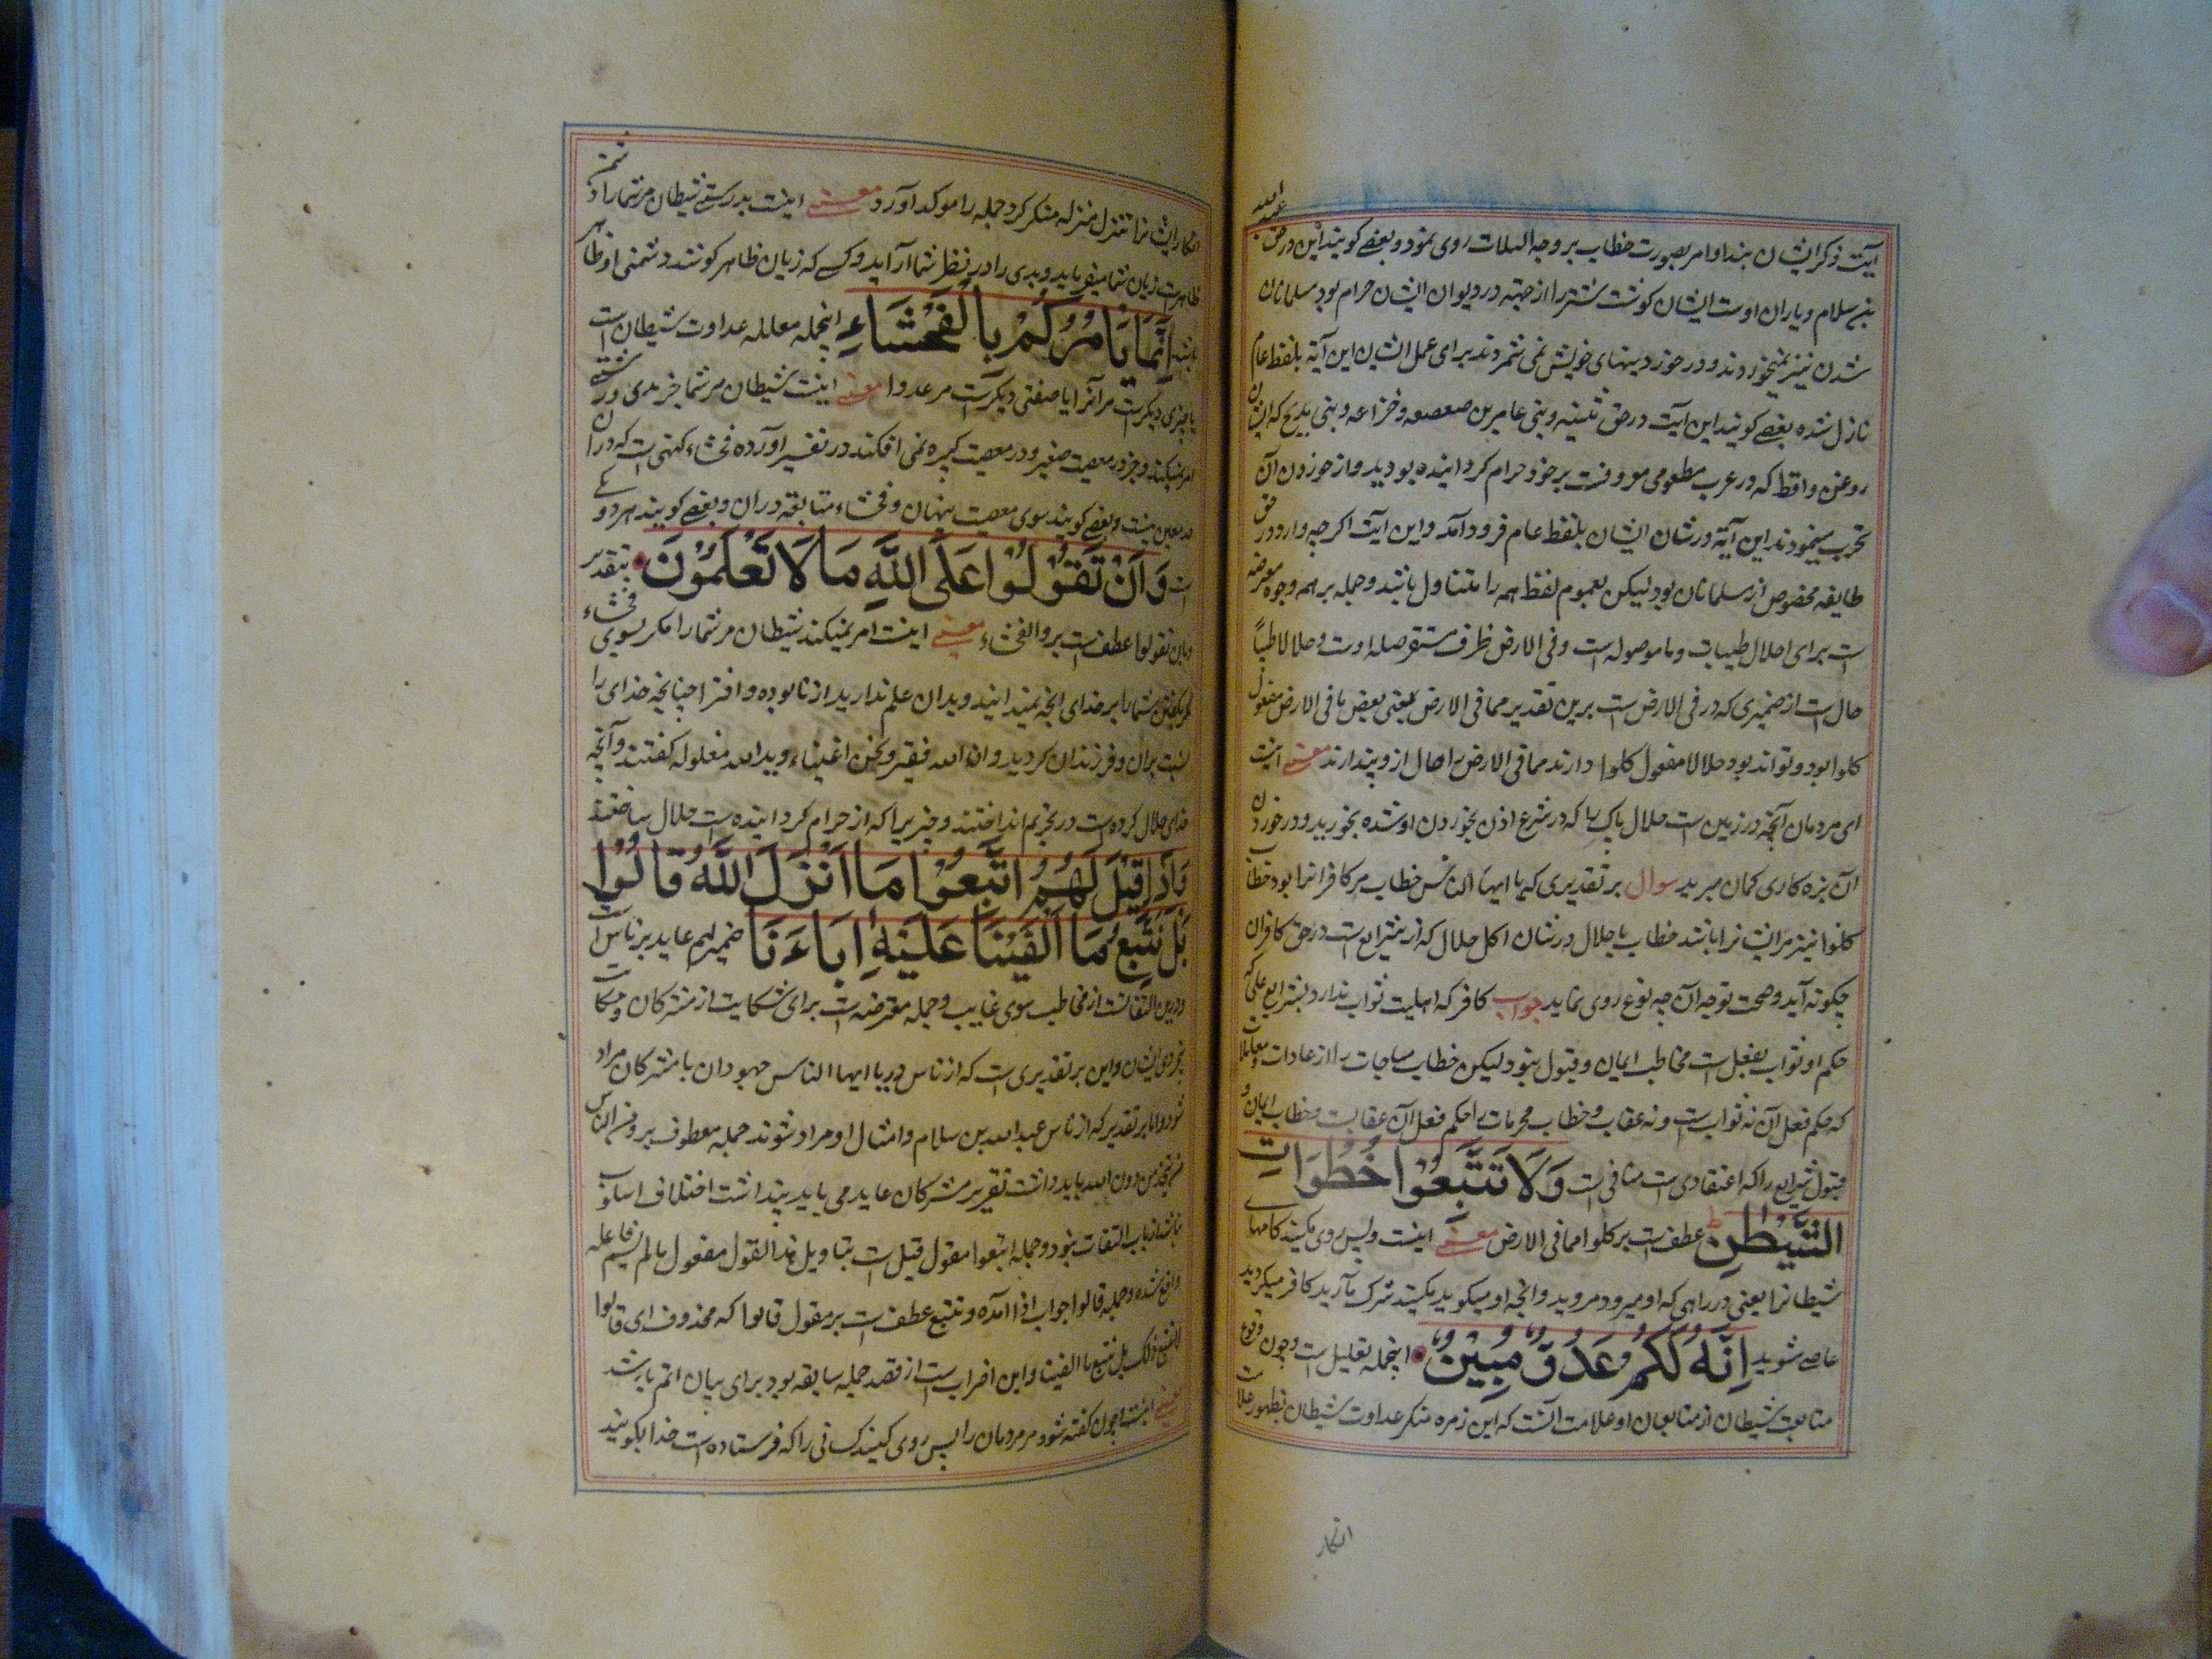 آیت ذکر ایشان بنداوامر بصورت خطاب بر وجه البلات روی نمود و بعضے کویند این در حق عبد الله
بن سلام و یاران اوست ایشان کوشت شتر را از جهته در دیوان ایشان حرام بود مسلمانان
شدن نیز نمیخوردند و در خورد بنهای خویش نمی شمردند برای عمل ایشان این آیة بلفظ عام
نازل شده بعضے کویند این آیت در حق ثقیف و بنی عامر بن صعصعه و خزاعه و بنی مدلج که ایشان
روغن و اقط که در عرب مطعومی معروفست بر خود حرام کردانیده بودید و از خوردن آن
تحرب مینمودند این آیة در شان ایشان بلفظ عام فرود آمد و این آیت اکرچه وارد در حق
طایفه مخصوص از مسلمانان بود لیکن بعموم لفظ همه را متناول باشد و جمله بر همه وجوه معترضه
است برای احلال طیبات و ما موصوله است و فی الارض ظرف مستقر صله اوست و حلالا طیباً
حال است از ضمیری که در فی الارض است برین تقدیر مما فی الارض بمعنی بعض ما فی الارض مفعول
کلوا بود و تواند بود حلالا مفعول کلوا دارند مما فی الارض را حال ازو پندارند معنے اینست
ای مردمان آنچه در زمین است حلال پاک را که در شرع اذن بخوردن او شده بخورید و در خوردن
آن بزه کاری کمان مبرید سوال بر تقدیری که یا ایها الناس خطاب مر کافرانرا بود خطاب
کلوا نیز مر ایشانرا باشد خطاب باحلال در شان اکل حلال که از شرایع است در حق کافران
چکونه آید و صحت توجه آن چه نوع روی نماید جواب کافر که اهلیت ثواب ندارد بشرایع علی که
حکم او ثواب بفعل است مخاطب ایمان و قبول بنود لیکن خطاب مباحات را از عادات و معاملات
که حکم فعل آن نه ثواب است و نه عقاب و خطاب محرمات را حکم فعل آن عقابست و خطاب ایمان و
قبول شرایع را که اعتقادی است منافی است وَلَا تَتَّبِعُوْا خُطُوَاتِ
الشَّيْطٰنِ عطف است بر کلوا مما فی الارض معنے اینست و پس روی مکنید کامهاے
شیطانرا یعنی در راهی که او میرود مروید و آنچه او میکوید مکنید شرک میآرید کافر میکردید
عاصے شوید اِنَّهٗ لَكُمْ عَدُوٌّ مُبِيْنٌ اینجمله تعلیل است و چون وقوع
متابعت شیطان از متابعان او علامت آنست که این زمره منکر عداوت شیطان بظهور علامات
انکار
انکار ایشانرا تنزل منزله منکر کرد جمله را موکد آورد معنے اینست بدرستے شیطان مر شمارا دشمن
ظاهر است زیان شما میفرماید و بدی را در نظر شما آراید و کسے که زیان ظاهر کوشد دشمنی او ظاهر
باشد اِنَّمَا يَاْمُرُكُمْ بِالْفَحْشَاءِ اینجمله معلله عداوت شیطان است
یا چیزی دیکر است مر آنرا یا صفتی دیکر است مر عدو را معنے اینست شیطان مر شما جز بدی و زشتے
امر نمیکند و جز در معصیت صغیره و در معصیت کبیره نمی افکند در تفسیر آورده فحشاء کنهی است که در ان
حد معین نیست و بعضے کویند سوی معصیت پنهان و فحشاء متابقه در ان و بعضے کویند هر دو یکے
است وَاَنْ تَقُوْلُوْا عَلَى اللّٰهِ مَا لَا تَعْلَمُوْنَ بتقدیر
وبان تقولوا عطف است بر و الفحشاء معنے اینست امر نمیکند شیطان مر شما را مکر بسوی و فحشاء
مکر بکفتن شما بر خدای آنچه نمیدانید و بدان علم ندارید از نابوده و افترا چنانچه خدای را
نسبت بزن و فرزندان کردید و ان الله فقیر و نحن اغنیاء و ید الله مغلوله کفتند و آنچه
خدای حلال کرده است در تحریم انداختند و چیزیرا که از حرام کردانیده است حلال ساختند
وَاِذَا قِيْلَ لَهُمُ اتَّبِعُوْا مَا اَنْزَلَ اللّٰهُ قَالُوْا
بَلْ نَتَّبِعُ مَا اَلْفَيْنَا عَلَيْهِ اٰبَاءَنَا ضمیر لهم عاید بر ناس است
و درین التفاتست از مخاطب سوی غایب و جمله معترضه است برای شکایت از مشرکان و حکایت
بخردی ایشان و این بر تقدیری است که از ناس در یا ایها الناس جهودان یا مشرکان مراد
شود و اما بر تقدیر که از ناس عبدالله بن سلام و امثال او مراد شوند جمله معطوف بر و من الناس
من یتخذ من دون الله باید دانست تقریر مشرکان عاید می باید پنداشت اختلاف اسلوب
باشد از باب التفات بنود و جمله اتبعوا مقول قیل است بتاویل هذا القول مفعول ما لم یسم فاعله
واقع شده و جمله قالوا جواب اذا آمده و نتبع عطف است بر مقول قالوا که محذوف ای قالوا
لا نتبع ذلک بل نتبع ما الفینا و این اضراب است از قصد جمله سابقه بود برای بیان اتم باشد
معنے اینست چون کفته شود مر مردمان را پس روی کنید کسانی را که فرستاده است خدا بکویند